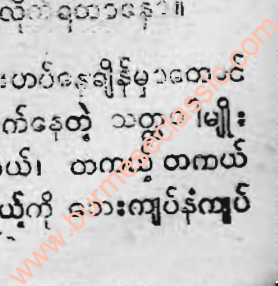 လိုက်ရတာနော။
ဟပ်နေချိန်မှာတောင်
က်နေတဲ့ သတ္တဝါမျိုး
ယ်၊ တကယ့် တကယ်
ယ့်ကို ဘေးကျပ်နံကျပ်
www.burmeseclassic.com